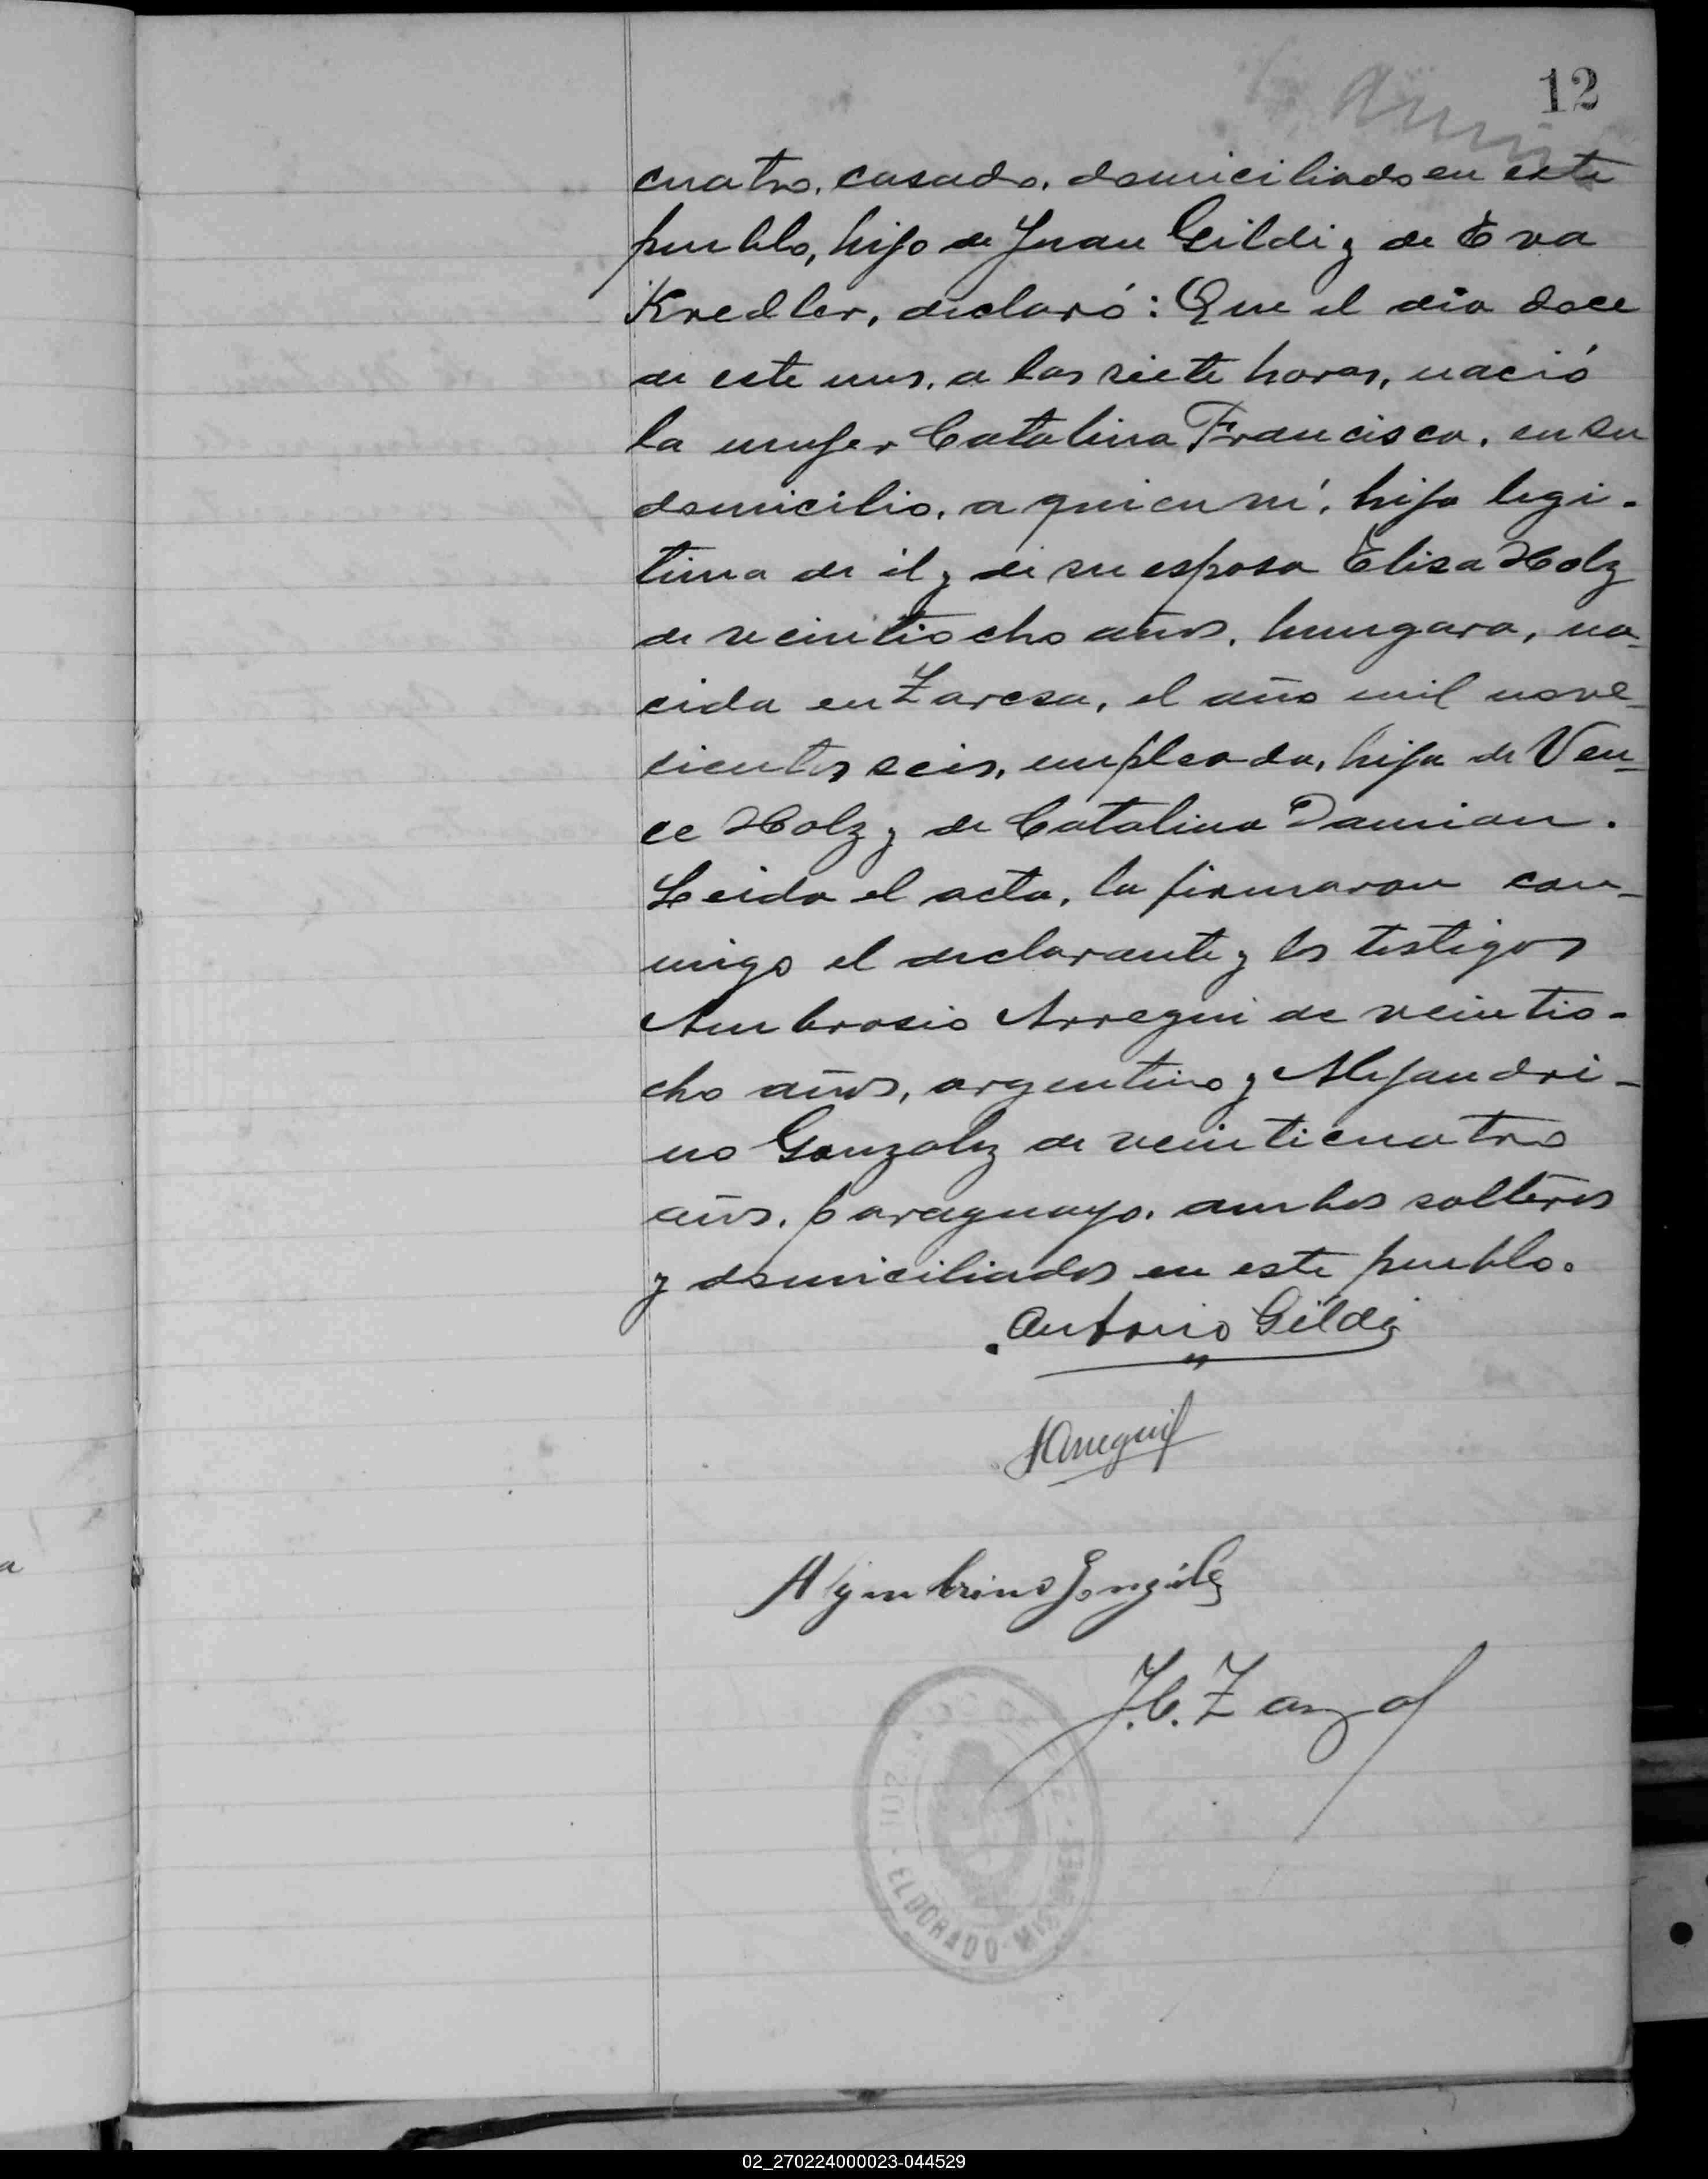 12
cuatro, casado, domiciliado en este
pueblo, hijo de Juan Gildi y de Eva
Kredler, declaró: Que el día doce
de este mes, a las siete horas, nació
la mujer Catalina Francisca, en su
domicilio, a quien ví, hija legi-
tima de él y de su esposa Elisa Holz
de veintiocho años, hungara, na-
cida en Zaresa, el año mil nove-
cientos seis, empleada, hija de Ven-
ce Holz y de Catalina Damian.
Leida el acta, la firmaron con-
migo el declarante y los testigos
Ambrosio Arregui de veintio-
cho años, argentino y Alejandri-
no Gonzalez de veinticuatro
años, paraguayo, ambos solteros
y domiciliados en este pueblo.
Antonio Gildi
Arregui
González
J.C. Z
ELDORADO - MISIONES
a
02_270224000023-044529